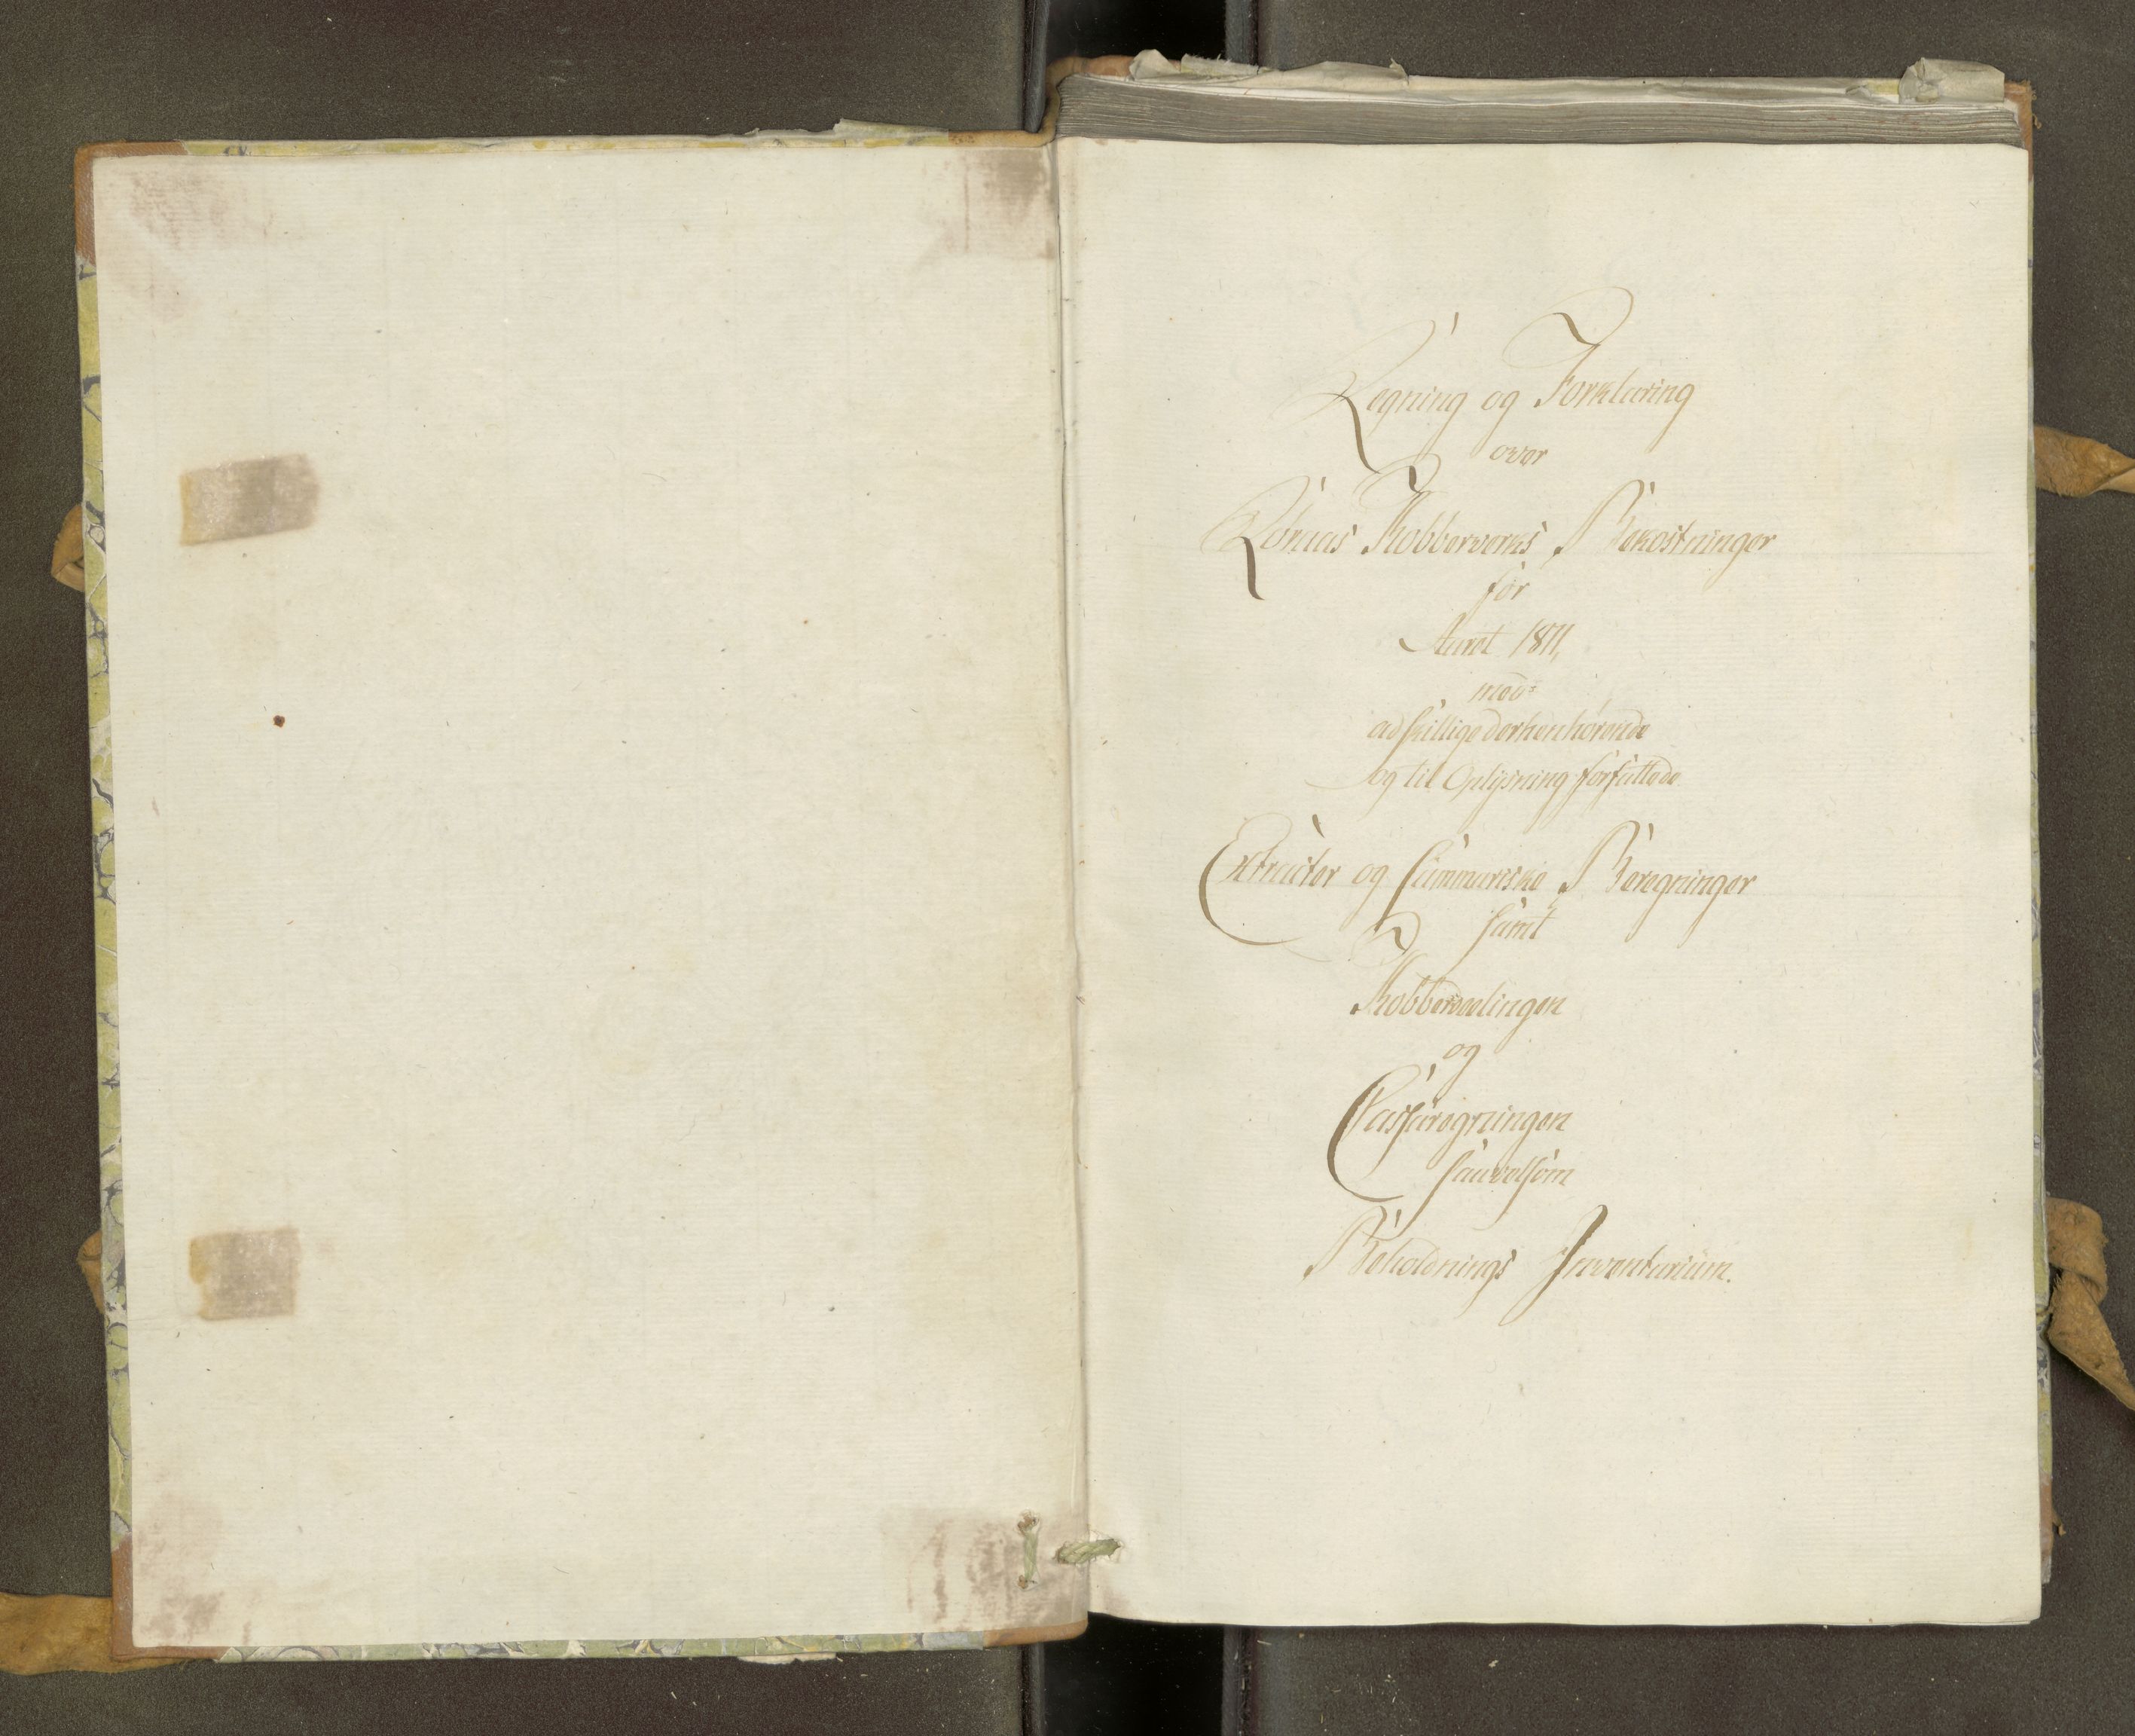 Regning og Forklaring
over
Röraas Kobberverks Bekostninger
for
Aaret 1811,
med
adskillige derhenhörende
og til Oplysning forfattede
Extracter og Summariske Beregninger
samt
Kobberdeelingen
og
Cassaregningen
saavelsom
Beholdnings Inventarium.